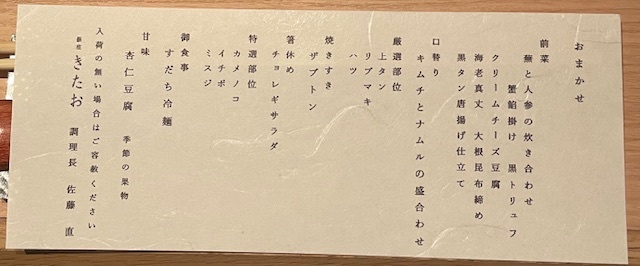 おまかせ
前菜
蕪と人参の炊き合わせ
蟹餡掛け 黒トリュフ
クリームチーズ豆腐
海老真丈 大根昆布締め
黒タン唐揚げ仕立て
口替り
キムチとナムルの盛合わせ
厳選部位
上タン
リブマキ
ハツ
焼きすき
ザブトン
箸休め
チョレギサラダ
特選部位
カメノコ
イチボ
ミスジ
御食事
すだち冷麺
甘味
杏仁豆腐 季節の果物
入荷の無い場合はご容赦ください
銀座 きたお 調理長 佐藤 直